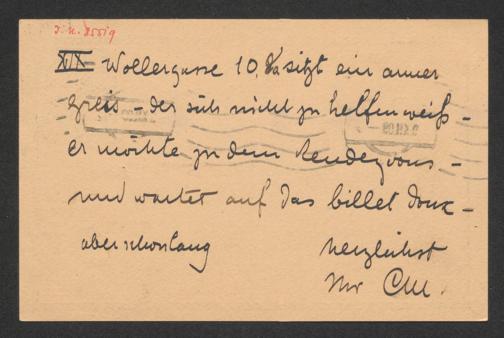 J. N. 85519
XIX Wollergasse 10, sitzt ein armer
greis – der sich nicht zu helfen weiß –
er möchte zu dem Rendezvous –
und wartet auf das billet doux –
aber schon lang herzlichst
Ihr CM.